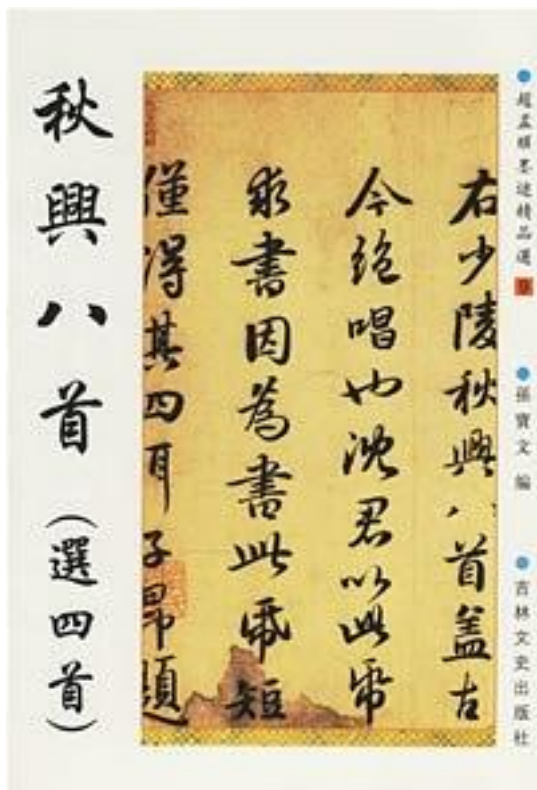 趙孟頫墨迹精品選
孫寶文 編
吉林文史出版社
右少陵秋興八首盖古
今絶唱也沈君以此帋
求書因為書此帋短
僅得其四耳子昂題
秋興八首(選四首)